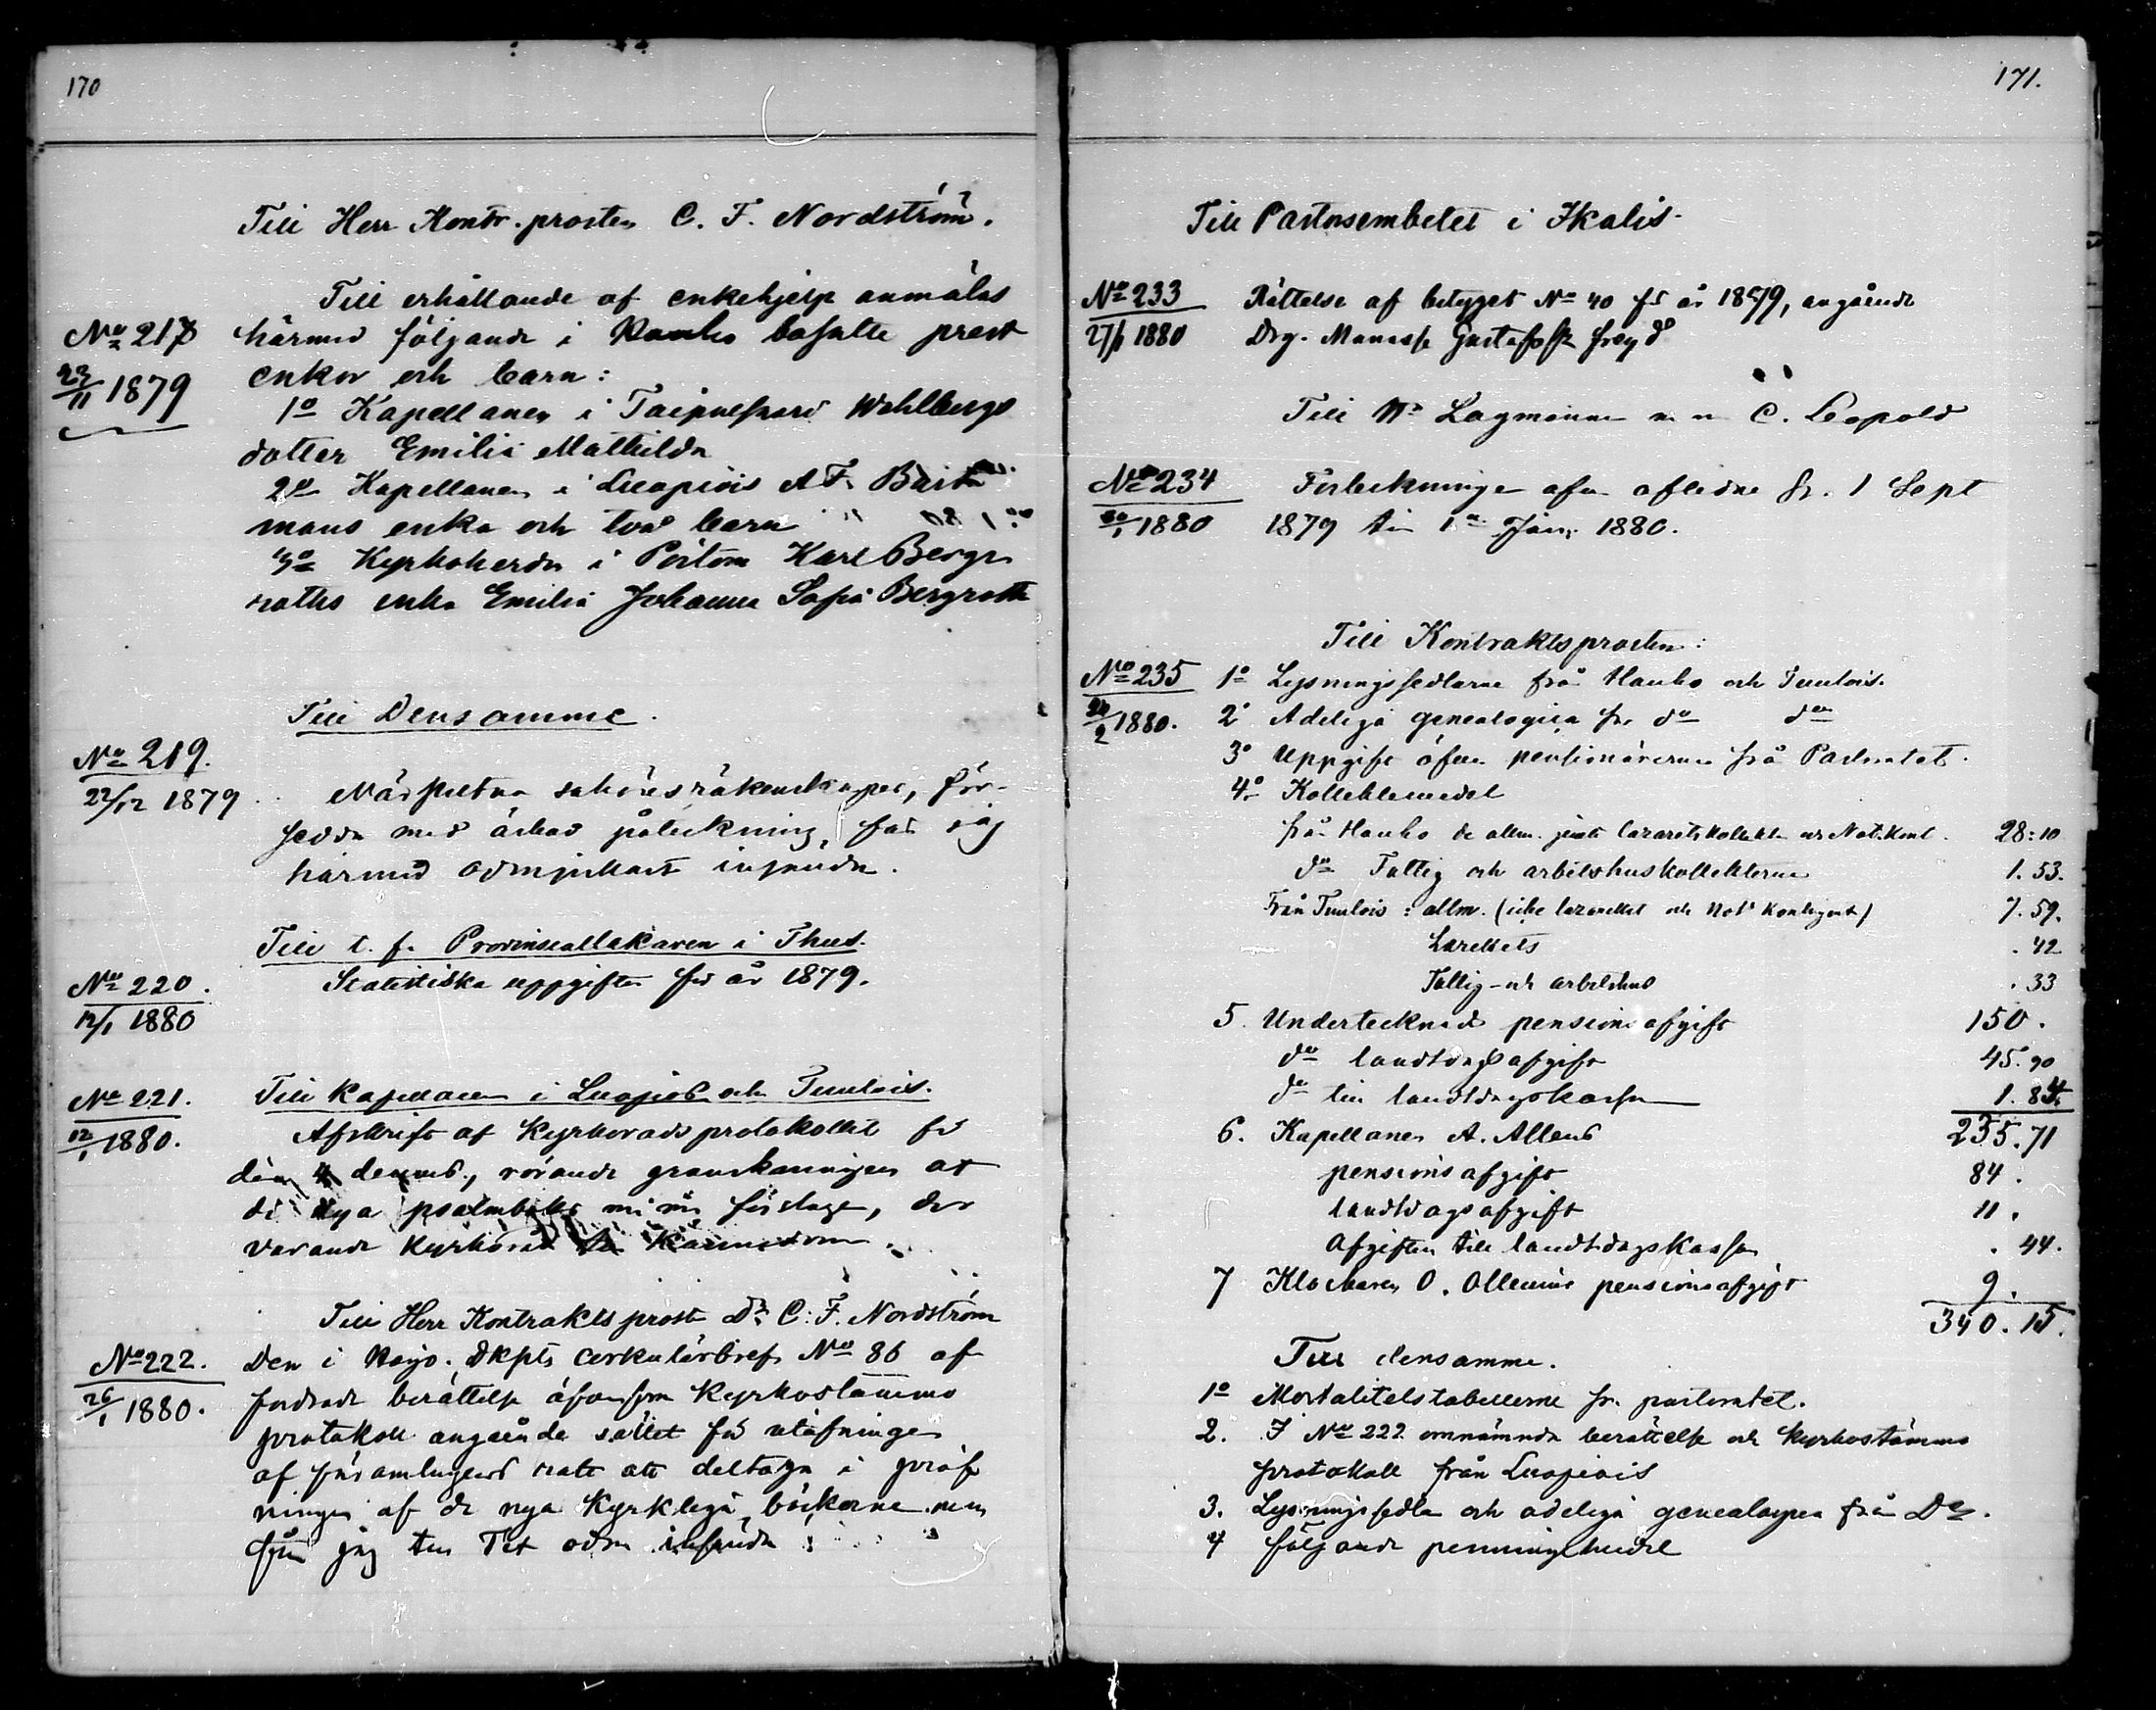 170
Till Herr Kontr. prosten C. F. Nordström.
Till erhållande af enkehjelp anmälas
No 218 härmed följande i Hauho bosatte prest
23/11 1879 enkor och barn:
1o Kapellanen i Taipalsaari Wahlbergs
dotter Emilia Mathilda
2o Kapellanen i Luopiois A F.
mans enka och två barn
3o Kyrkoherden i Pörtom Karl Berg
roths enka Emilia Johanna Sofia Bergroth
Till Densamme.
No 219.
22/12 1879 räkenskaper, för-
sedda med påteckning, får jag
härmed ödmjukast insända.
Till t. f. Provinsialläkaren i Thus.
No 220. Statistiska uppgifter för år 1879.
12/1 1880
No 221. Till Kapellanen i Luopiois och Tuulois.
12/1 1880. Afskrift af Kyrkorådsprotokollet för
den 4 dennes, rörande granskningen af
de nya psalmboks förslagen, der
varande Kyrkoråd till Kännedom.
Till Herr Kontraktsprost Dr C. F. Nordström
No 222. Den i Högv. Dkpts Cirkulärbref No 86 af
26/1 1880. fordrade berättelse äfvensom Kyrkostämmo
protokoll angående sättet för utöfningen
af församlingens rätt att deltaga i pröf
ningen af de nya Kyrkliga böckerne
får jag till Tit ödm insända
171.
Till Pastorsembetet i Ikalis.
No 233 Rättelse af betyget No 40 för år 1879, angående
27/1 1880 Drg. Manasse Gustafsson
Till Hr Lagmannen m m C. Leopold
No 234 Förteckningen öfver aflidne fr. 1 Sept
30/1 1880 1879 till 1 Jan. 1880.
Till Kontraktsprosten:
No 235 1o Lysningssedlarne från Hauho och Tuulois.
24/2 1880. 2o Adeliga genealogier fr do do
3o Uppgift öfver pensionärerna från Pastoratet.
4o Kollektmedel
från Hauho de allm. jemte lazaretskollekten och Not. Kont. 28:10
do Fattig och arbetshuskollekterne 1.53.
Från Tuulois: allm. (icke lazarettet och Not Kontingent) 7.59.
Lazarettets . 42
Fattig- och arbetshus . 33
5. Undertecknads pensionsafgift 150.
do landtdagsafgift 45.90
do till landtdagskassan 1.84
6. Kapellanen A. Allenii 235.71
pensions afgift 84.
landtdagsafgift 11.
Afgiften till landtdagskassan . 44.
7 Klockaren O. Ollenii pensionsafgift 9.
340.15.
Till densamme.
1o Mortalitetstabellerne fr. pastoratet.
2. I No 222 omnämnda berättelse och Kyrkostämmo
protokoll från Luopiois
3. Lysningssedlar och adeliga genealogier från Do.
4 följande penningmedel